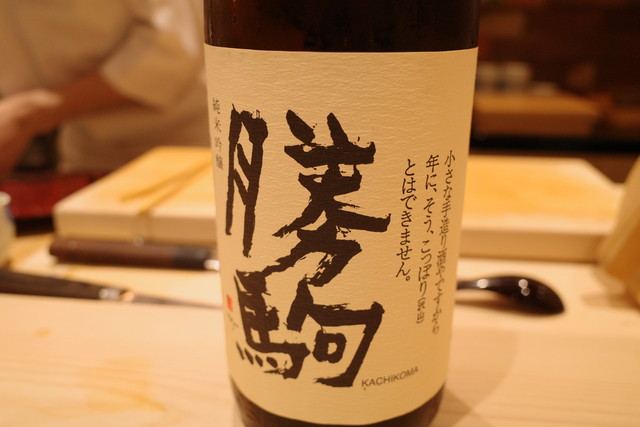 純米吟醸
勝駒
小さな手造り酒やですから
年に、そう、こっぽり
とはできません。
KACHIKOMA